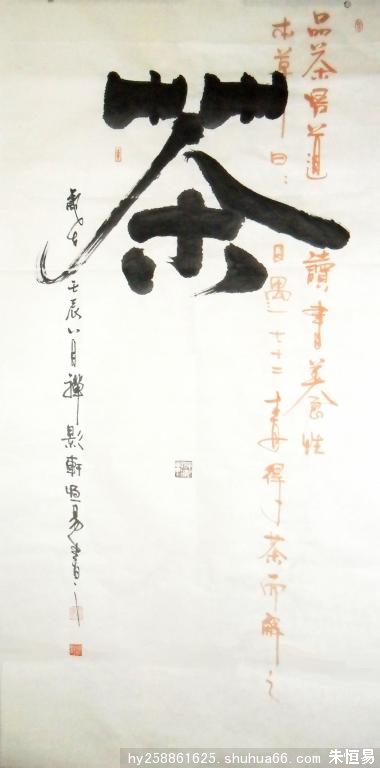 品茶悟道 讀書養性
本草曰：日遇七十二毒得茶而解之
茶
歲在壬辰八月禪影軒恒易書
hy258861625.shuhua66.com 朱恒易